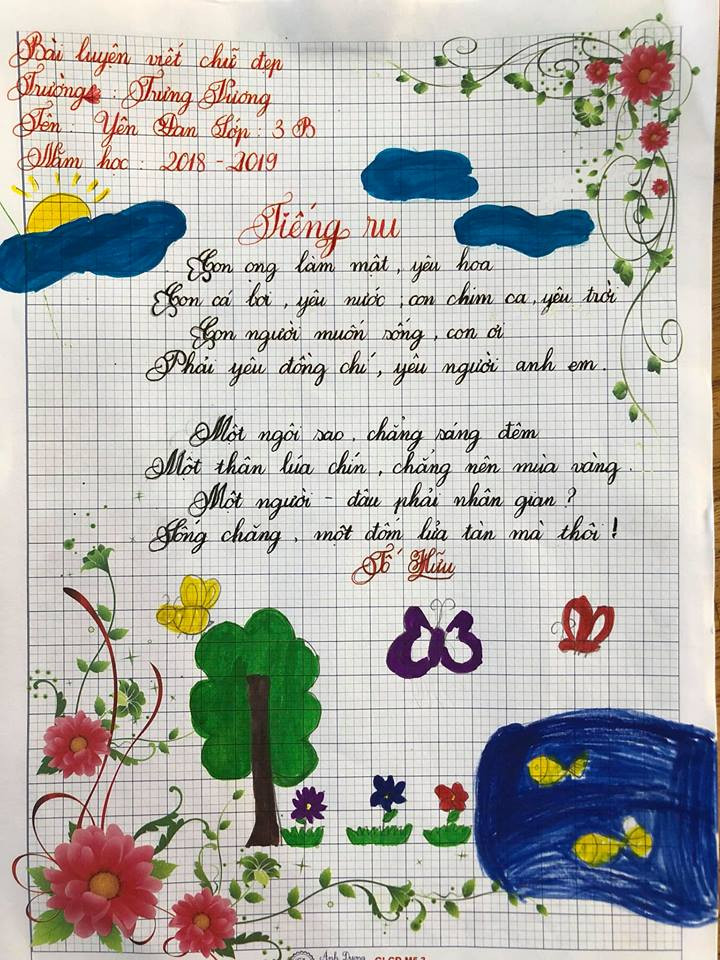 Bài luyện viết chữ đẹp
Trường : Trưng Vương
Tên : Yên Đan Lớp : 3 B
Năm học : 2018 - 2019
Tiếng ru
Con ong làm mật, yêu hoa
Con cá bơi, yêu nước ; con chim ca, yêu trời
Con người muốn sống, con ơi
Phải yêu đồng chí, yêu người anh em.
Một ngôi sao, chẳng sáng đêm
Một thân lúa chín, chẳng nên mùa vàng.
Một người - đâu phải nhân gian ?
Sống chăng, một đốm lửa tàn mà thôi !
Tố Hữu
Anh Dung